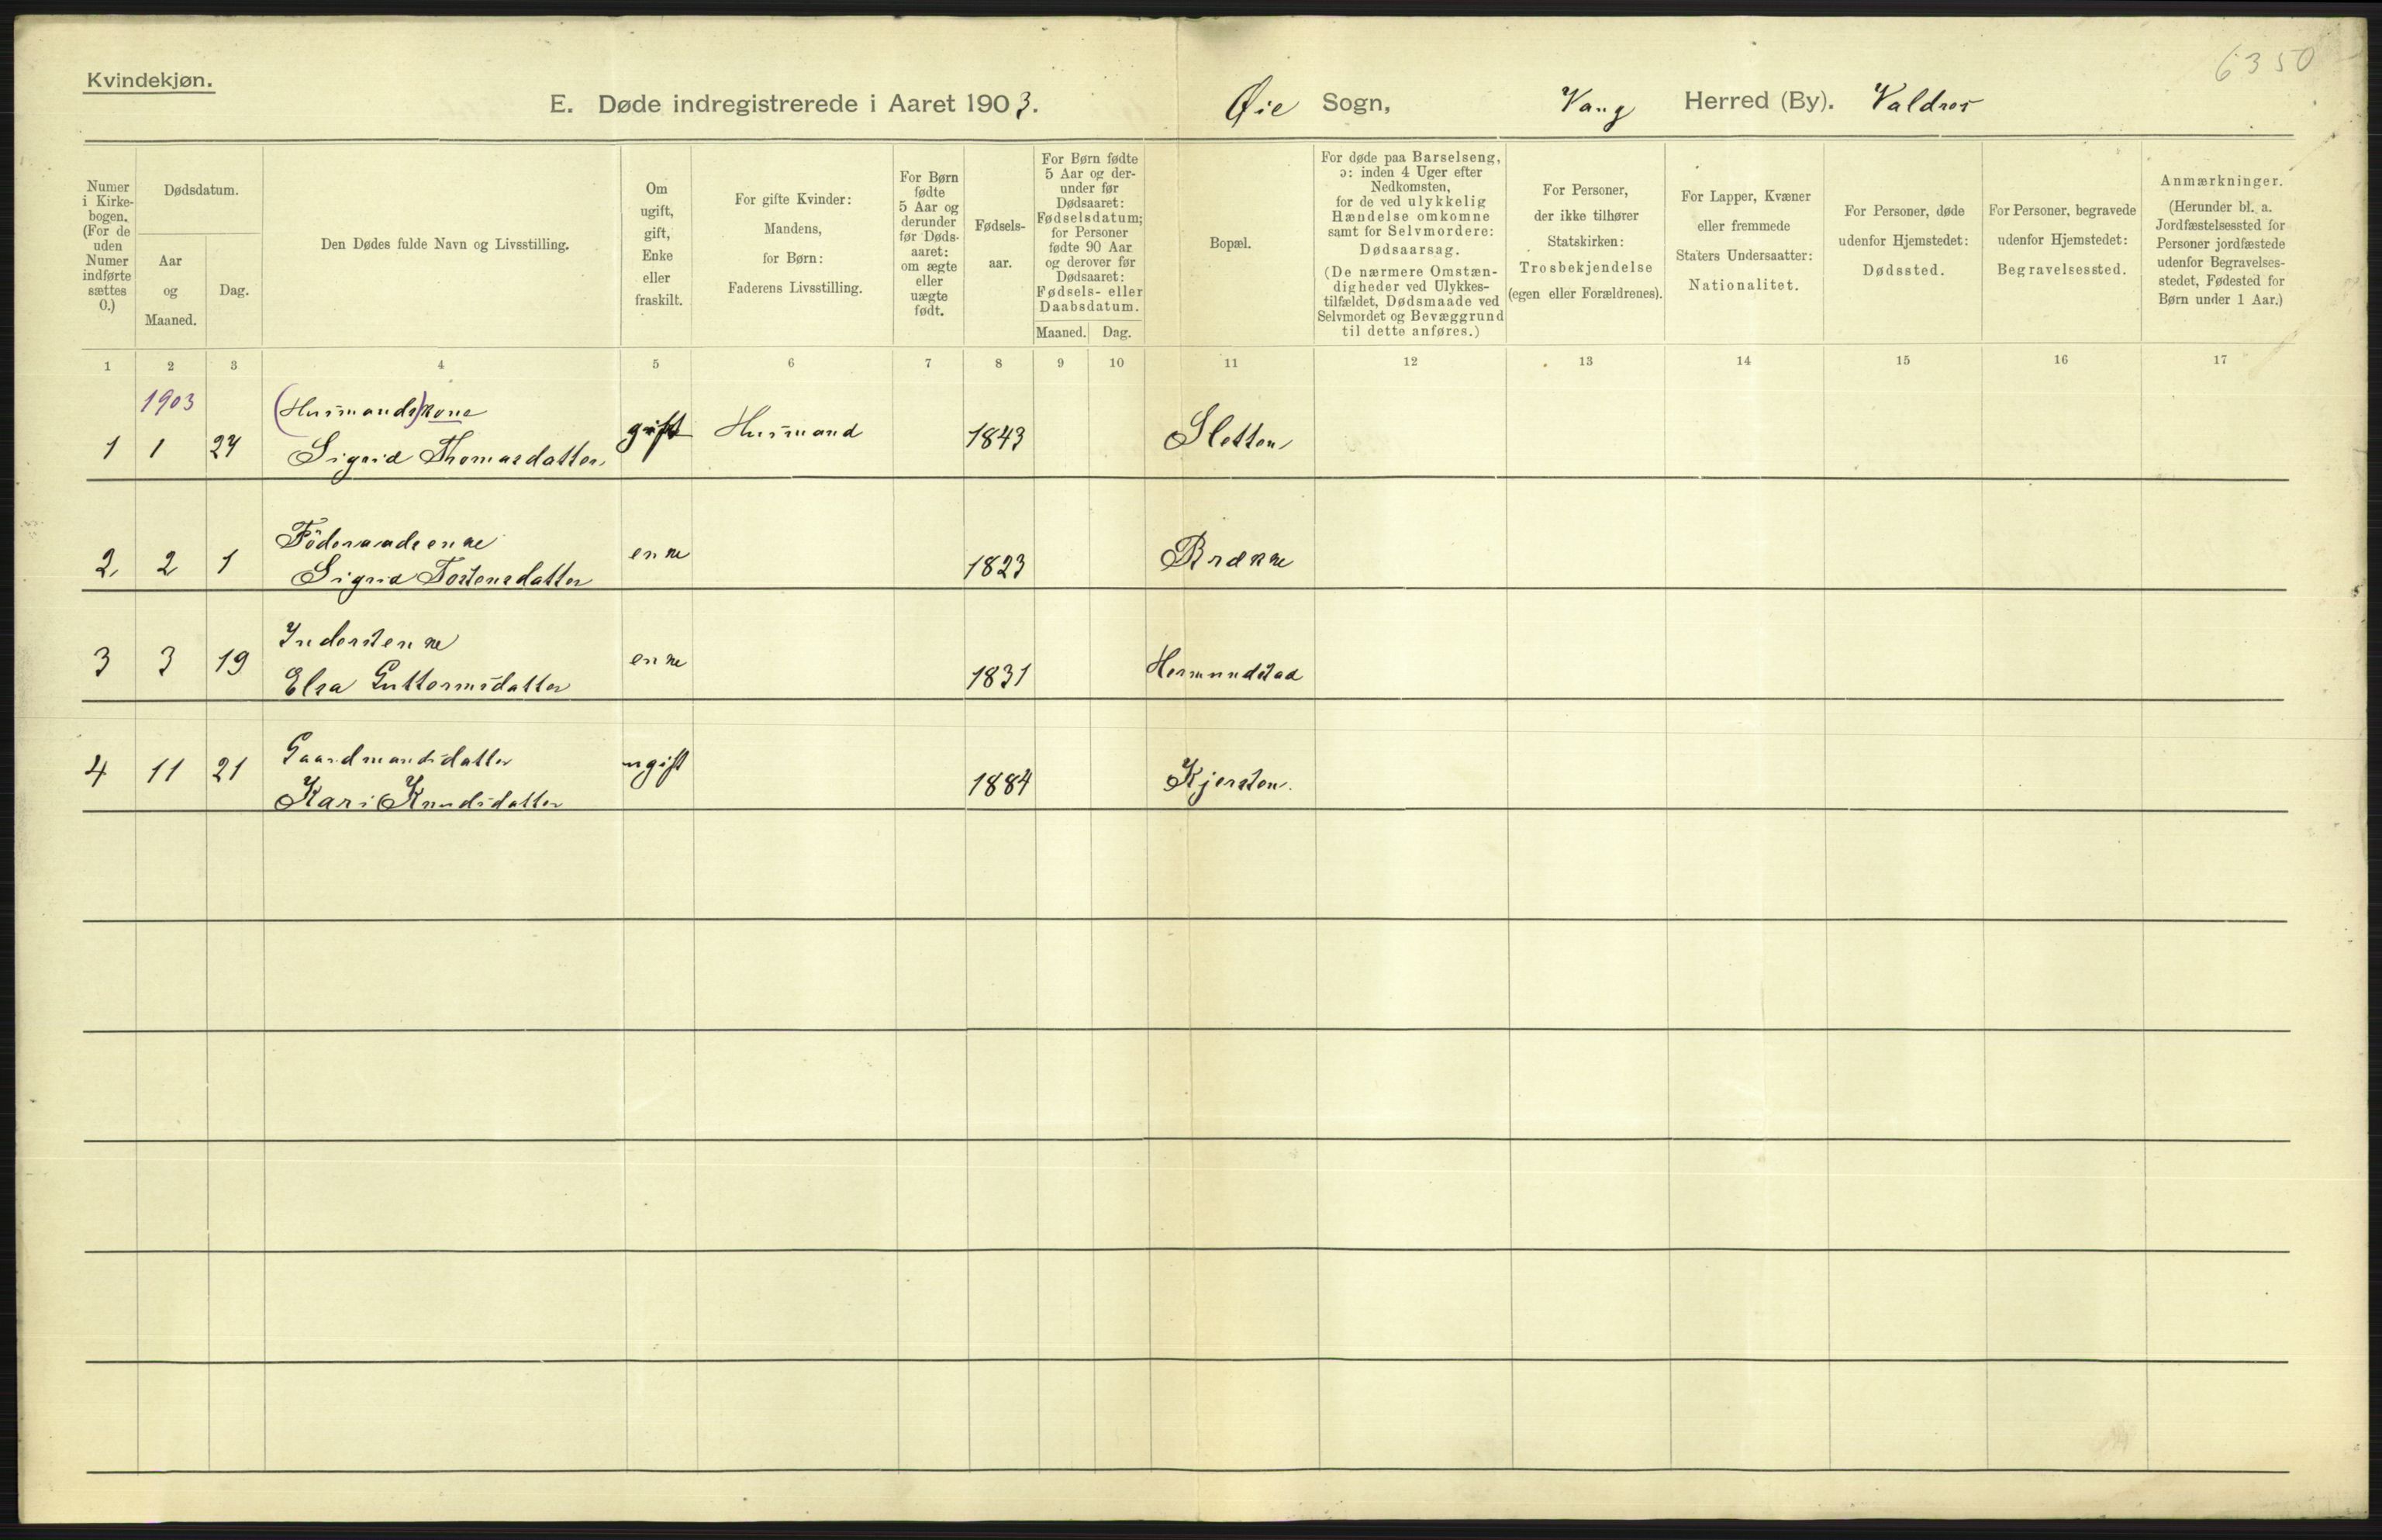 6350
Kvindekjøn.
E. Døde indregistrerede i Aaret 1903. Øie Sogn, Vang Herred (By). Valdres
Numer
i Kirke-
bogen.
(For de
uden
Numer
indførte
sættes
0.)
Dødsdatum.
Aar
og
Maaned.
Dag.
Den Dødes fulde Navn og Livsstilling.
Om
ugift,
gift,
Enke
eller
fraskilt.
For gifte Kvinder:
Mandens,
for Børn:
Faderens Livsstilling.
For Børn
fødte
5 Aar og
derunder
før Døds-
aaret:
om ægte
eller
uægte
født.
Fødsels-
aar.
For Børn fødte
5 Aar og der-
under før
Dødsaaret:
Fødselsdatum;
for Personer
fødte 90 Aar
og derover før
Dødsaaret:
Fødsels- eller
Daabsdatum.
Maaned. Dag.
Bopæl.
For døde paa Barselseng,
ɔ: inden 4 Uger efter
Nedkomsten,
for de ved ulykkelig
Hændelse omkomne
samt for Selvmordere:
Dødsaarsag.
(De nærmere Omstæn-
digheder ved Ulykkes-
tilfældet, Dødsmaade ved
Selvmordet og Bevæggrund
til dette anføres.)
For Personer,
der ikke tilhører
Statskirken:
Trosbekjendelse
(egen eller Forældrenes).
For Lapper, Kvæner
eller fremmede
Staters Undersaatter:
Nationalitet.
For Personer, døde
udenfor Hjemstedet:
Dødssted.
For Personer, begravede
udenfor Hjemstedet:
Begravelsessted.
Anmærkninger.
(Herunder bl. a.
Jordfæstelsessted for
Personer jordfæstede
udenfor Begravelses-
stedet, Fødested for
Børn under 1 Aar.)
1 2 3 4 5 6 7 8 9 10 11 12 13 14 15 16 17
1903 (Husmands)kone
1 1 24 Sigrid Thomasdatter. gift Husmand 1843 Sletten
Föderaadsenke
2 2 1 Sigrid Tostensdatter enke 1823 Brække
Inderstenke
3 3 19 Elsa Guttormsdatter enke 1831 Hermundstad
Gaardmandsdatter
4 11 21 Kari Knudsdatter ugift 1884 Kjersten.